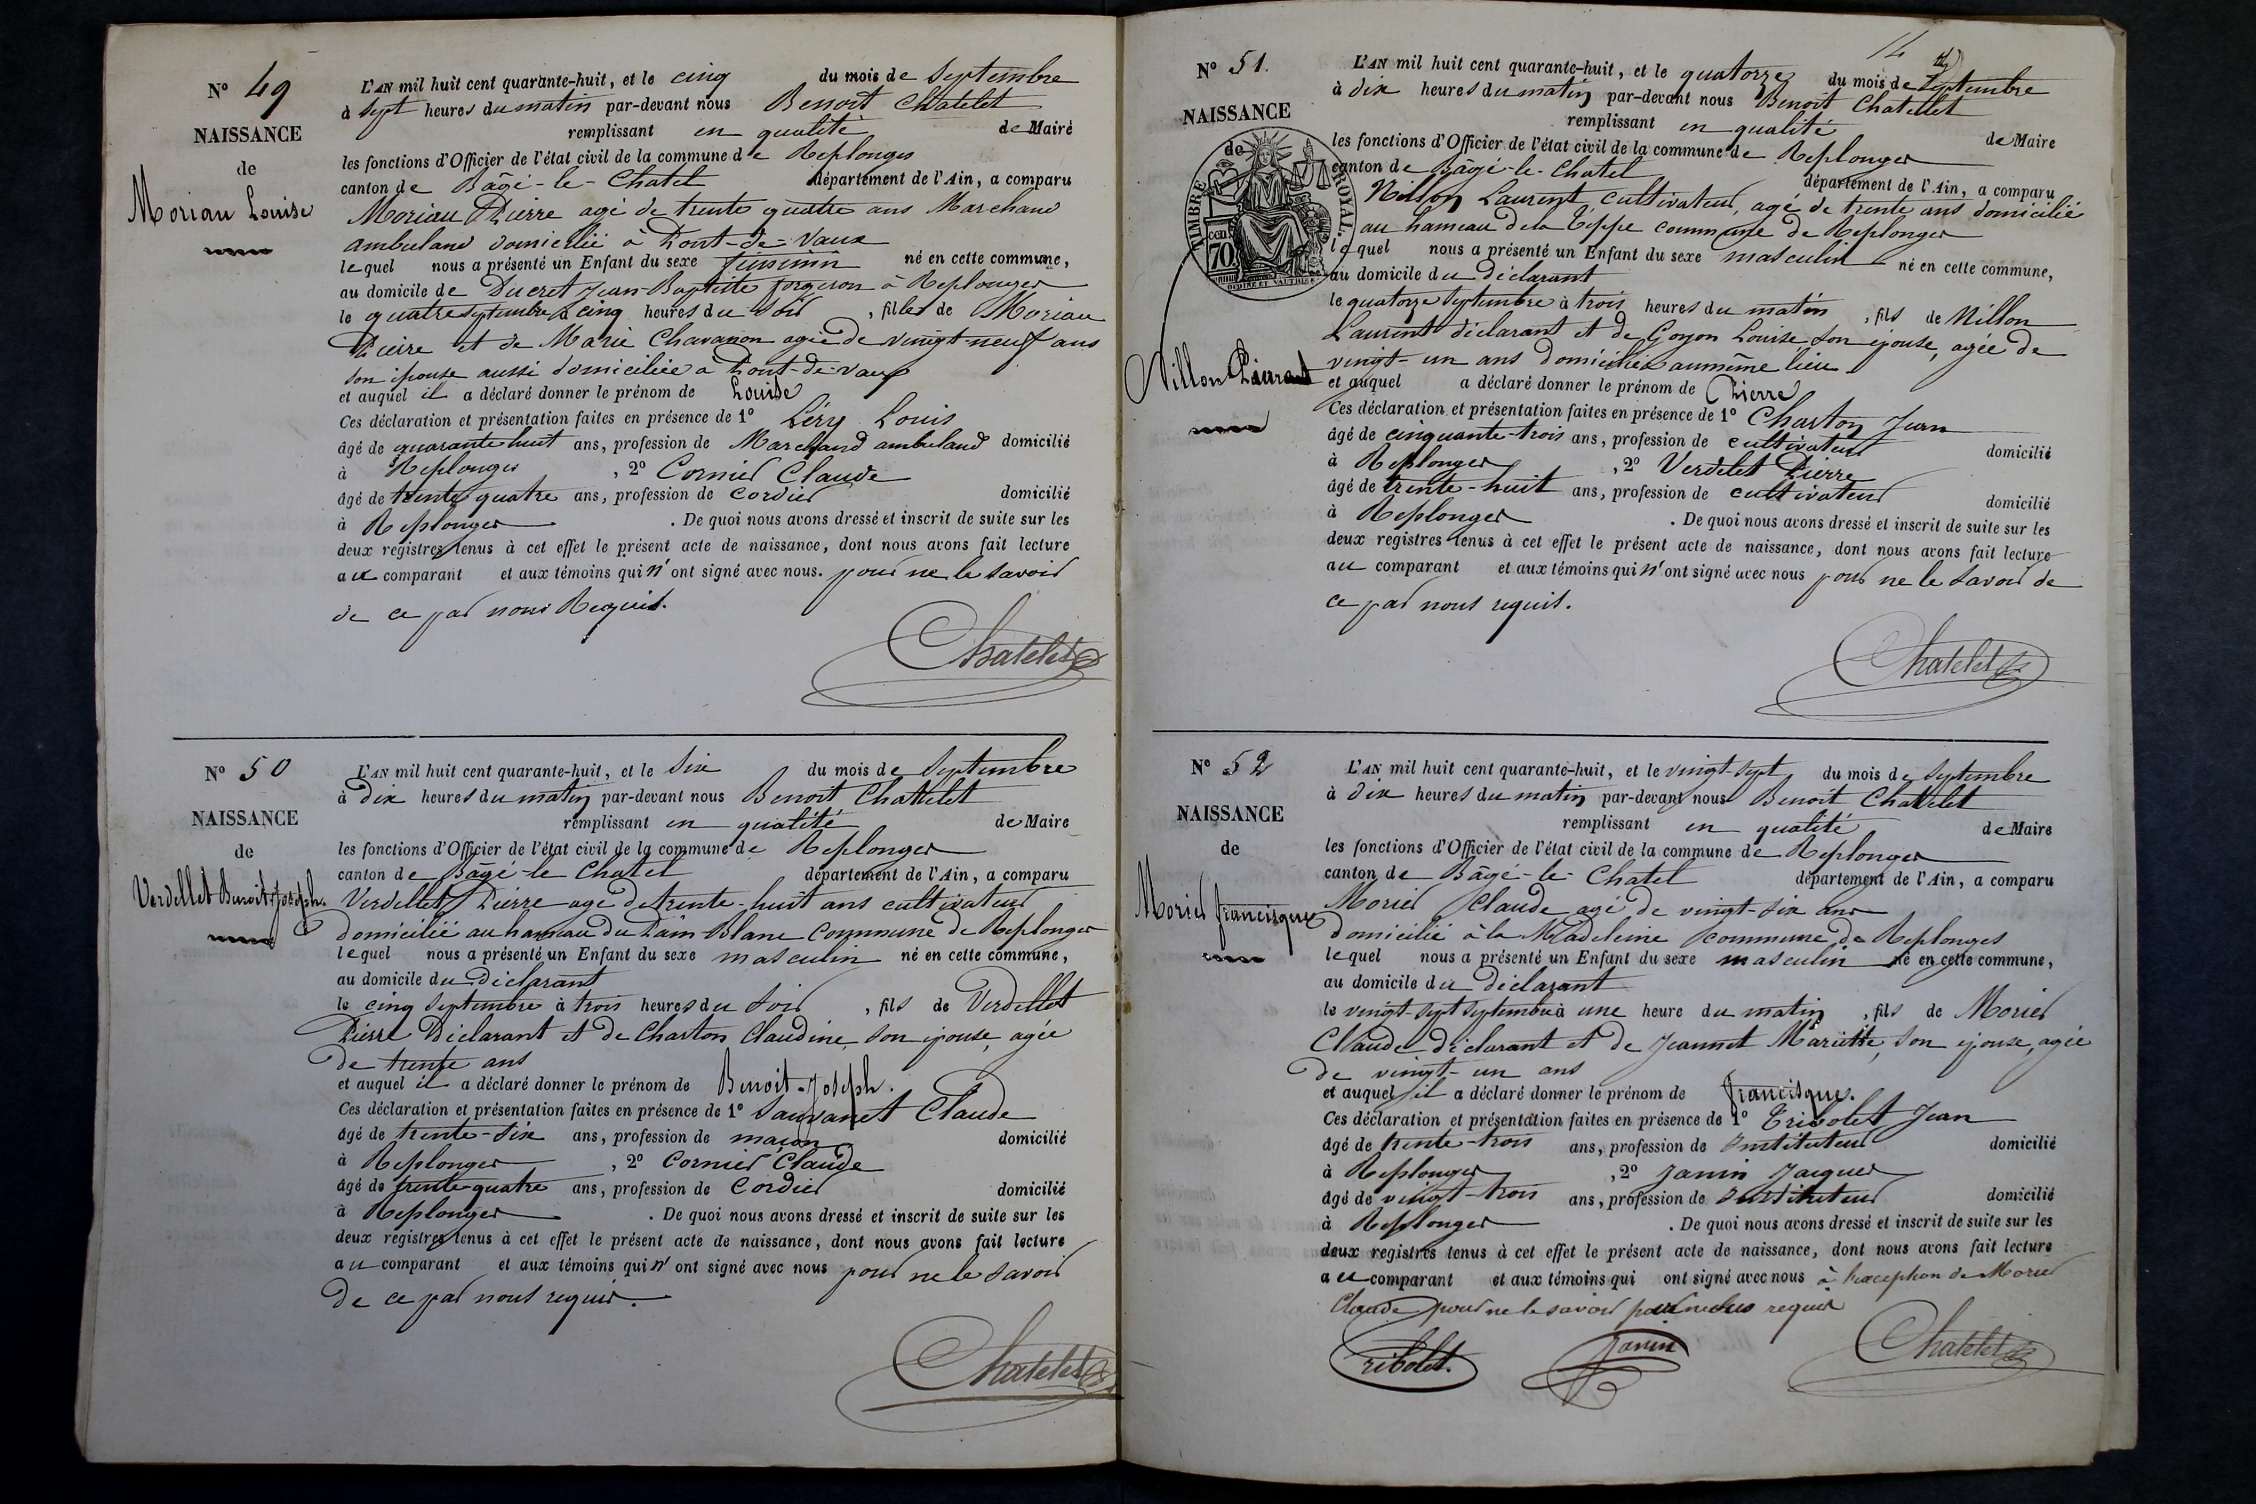 N° 49
NAISSANCE
de
Moriau Louise
L'AN mil huit cent quarante-huit, et le cinq du mois de Septembre
à Sept heures du matin par-devant nous Benoit Chatelet
remplissant en qualité de Maire
les fonctions d'Officier de l'état civil de la commune de Replonges
canton de Bâgé-le-Chatel département de l'Ain, a comparu
Moriau Pierre agé de trente quatre ans Marchand
ambuland domicilié à Pont-de-Vaux
lequel nous a présenté un Enfant du sexe féminin né en cette commune,
au domicile de Ducret Jean-Baptiste forgeron à Replonges
le quatre septembre à cinq heures du Soir, fille de Moriau
Pierre et de Marie Chavanon agée de vingt-neuf ans
son épouse aussi domiciliée à Pont-de-Vaux
et auquel il a déclaré donner le prénom de Louise
Ces déclaration et présentation faites en présence de 1° Léry Louis
âgé de quarante huit ans, profession de Marchand ambuland domicilié
à Replonges, 2° Cornier Claude
âgé de trente quatre ans, profession de cordier domicilié
à Replonges. De quoi nous avons dressé et inscrit de suite sur les
deux registres tenus à cet effet le présent acte de naissance, dont nous avons fait lecture
au comparant et aux témoins qui n'ont signé avec nous. pour ne le savoir
de ce par nous Requis.
Chatelet
N° 50
NAISSANCE
de
Verdellet Benoit-Joseph.
L'AN mil huit cent quarante-huit, et le Six du mois de Septembre
à Dix heures du matin par-devant nous Benoit Chatelet
remplissant en qualité de Maire
les fonctions d'Officier de l'état civil de la commune de Replonges
canton de Bâgé-le-Chatel département de l'Ain, a comparu
Verdellet Pierre agé de trente-huit ans cultivateur
domicilié au hameau du Pain-Blanc commune de Replonges
lequel nous a présenté un Enfant du sexe masculin né en cette commune,
au domicile du Déclarant
le cinq Septembre à trois heures du Soir, fils de Verdellet
Pierre Déclarant et de Charton Claudine, son épouse, agée
de trente ans
et auquel il a déclaré donner le prénom de Benoit-Joseph.
Ces déclaration et présentation faites en présence de 1° Sauvanet Claude
âgé de trente-six ans, profession de maçon domicilié
à Replonges, 2° Cornier Claude
âgé de trente-quatre ans, profession de Cordier domicilié
à Replonges. De quoi nous avons dressé et inscrit de suite sur les
deux registres tenus à cet effet le présent acte de naissance, dont nous avons fait lecture
au comparant et aux témoins qui n'ont signé avec nous pour ne le savoir
De ce par nous requis.
Chatelet
14
N° 51.
NAISSANCE
de
TIMBRE ROYAL.
cen. 70
Nillon Pierre
L'AN mil huit cent quarante-huit, et le quatorze du mois de Septembre
à dix heures du matin par-devant nous Benoit Chatellet
remplissant en qualité de Maire
les fonctions d'Officier de l'état civil de la commune de Replonges
canton de Bâgé-le-Chatel département de l'Ain, a comparu
Nillon Laurent cultivateur, agé de trente ans domicilié
au hameau de la Teppe commune de Replonges
lequel nous a présenté un Enfant du sexe masculin né en cette commune,
au domicile du déclarant
le quatorze septembre à trois heures du matin, fils de Nillon
Laurent déclarant et de Goyon Louise, son épouse, agée de
vingt-un ans domiciliés au même lieu
et auquel a déclaré donner le prénom de Pierre
Ces déclaration et présentation faites en présence de 1° Charton Jean
âgé de cinquante-trois ans, profession de cultivateur domicilié
à Replonges, 2° Verdelet Pierre
âgé de trente-huit ans, profession de cultivateur domicilié
à Replonges. De quoi nous avons dressé et inscrit de suite sur les
deux registres tenus à cet effet le présent acte de naissance, dont nous avons fait lecture
au comparant et aux témoins qui n'ont signé avec nous pour ne le savoir de
ce par nous requis.
Chatelet
N° 52
NAISSANCE
de
Morier francisque
L'AN mil huit cent quarante-huit, et le vingt-sept du mois de Septembre
à Dix heures du matin par-devant nous Benoit Chatelet
remplissant en qualité de Maire
les fonctions d'Officier de l'état civil de la commune de Replonges
canton de Bâgé-le-Chatel département de l'Ain, a comparu
Morier Claude agé de vingt-six ans
domicilié à la Madeleine commune de Replonges
lequel nous a présenté un Enfant du sexe masculin né en cette commune,
au domicile du déclarant
le vingt-sept septembre à une heure du matin, fils de Morier
Claude déclarant et de Jeannet Mariette, son épouse, agée
de vingt-un ans
et auquel il a déclaré donner le prénom de francisque.
Ces déclaration et présentation faites en présence de 1° Tribolet Jean
âgé de trente-trois ans, profession de Instituteur domicilié
à Replonges, 2° Janin Jacques
âgé de vingt-trois ans, profession de Instituteur domicilié
à Replonges. De quoi nous avons dressé et inscrit de suite sur les
deux registres tenus à cet effet le présent acte de naissance, dont nous avons fait lecture
au comparant et aux témoins qui ont signé avec nous à l'exception de Morier
Claude pour ne le savoir requis
Tribolet. Janin Chatelet